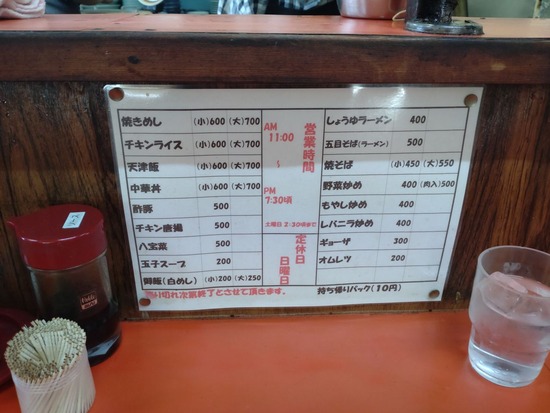 焼きめし (小)600 (大)700
チキンライス (小)600 (大)700
天津飯 (小)600 (大)700
中華丼 (小)600 (大)700
酢豚 500
チキン唐揚 500
八宝菜 500
玉子スープ 200
御飯(白めし) (小)200 (大)250
売り切れ次第終了とさせて頂きます。
営業時間
AM 11:00
～
PM 7:30頃
土曜日 2:30頃まで
定休日
日曜日
しょうゆラーメン 400
五目そば(ラーメン) 500
焼そば (小)450 (大)550
野菜炒め 400 (肉入)500
もやし炒め 400
レバニラ炒め 400
ギョーザ 300
オムレツ 200
持ち帰りパック(10円)